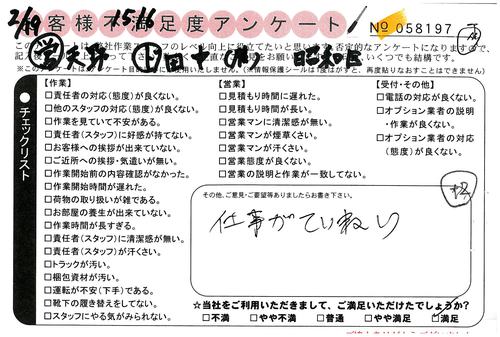 2/19 お客様不満足度アンケート 15:16
No 058197
営 天野 山田十
昭和区
チェックリスト
【作業】
□責任者の対応(態度)が良くない。
□他のスタッフの対応(態度)が良くない。
□作業を見ていて不安がある。
□責任者(スタッフ)に好感が持てない。
□お客様への挨拶が出来ていない。
□ご近所への挨拶・気遣いが無い。
□作業開始前の内容確認がなかった。
□作業開始時間が遅れた。
□荷物の取り扱いが雑である。
□お部屋の養生が出来ていない。
□作業時間が長すぎる。
□責任者(スタッフ)に清潔感が無い。
□責任者(スタッフ)が汗くさい。
□トラックが汚い。
□梱包資材が汚い。
□運転が不安(下手)である。
□靴下の履き替えをしてない。
□スタッフにやる気がみられない。
【営業】
□見積もり時間に遅れた。
□見積もり時間が長い。
□営業マンに清潔感が無い。
□営業マンが煙草くさい。
□営業マンが汗くさい。
□営業態度が良くない。
□営業の説明と作業が一致してない。
【受付・その他】
□電話の対応が良くない。
□オプション業者の説明
・作業が良くない。
□オプション業者の対応
(態度)が良くない。
その他、ご意見・ご要望等ありましたらお書き下さい。
仕事がていねい
☆当社をご利用いただきまして、ご満足いただけたでしょうか?
□不満 □やや不満 □普通 □やや満足 ☑満足